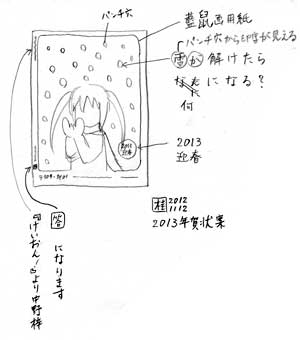 パンチ穴
藍鼠画用紙
パンチ穴から印字が見える
雪が解けたら
になる?
何
2013
迎春
2013
迎春
桂 2012
11 12
2013年賀状案
答 になります
「けいおん!」より中野梓